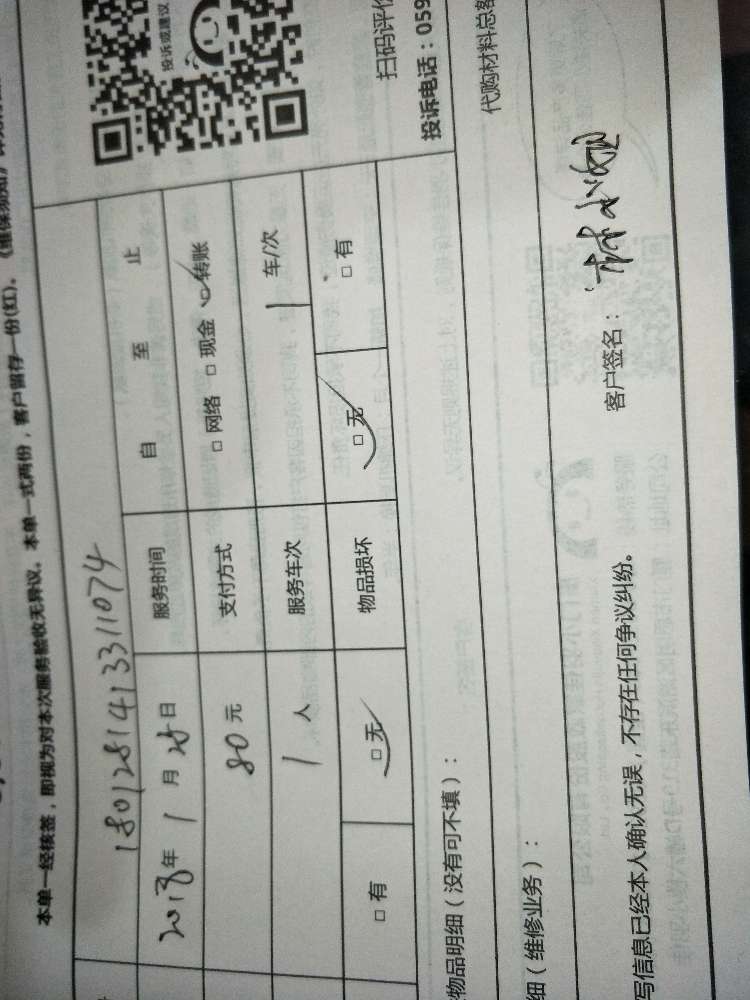 本单一经核签，即视为对本次服务验收无异议。本单一式两份，客户留存一份(红)。
投诉或建议
1801281413311074
2018年1月28日 服务时间 自 至 止
80元 支付方式 □网络 □现金 □转账
1人 服务车次 1车/次
□有 □无 物品损坏 □无 □有
扫码评价
投诉电话：059
物品明细（没有可不填）：
代购材料总
细（维修业务）：
写信息已经本人确认无误，不存在任何争议纠纷。 客户签名：